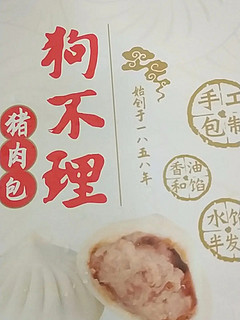 狗不理
猪肉包
始创于一八五八年
手工
包制
香油
和馅
水馅
半发